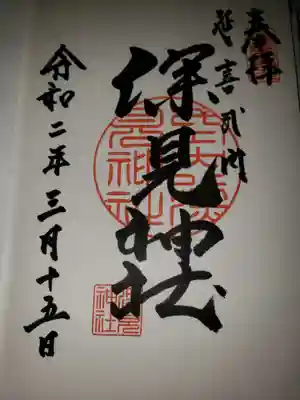 奉拝
延喜式内
深見神社
令和二年三月十五日
深見神社